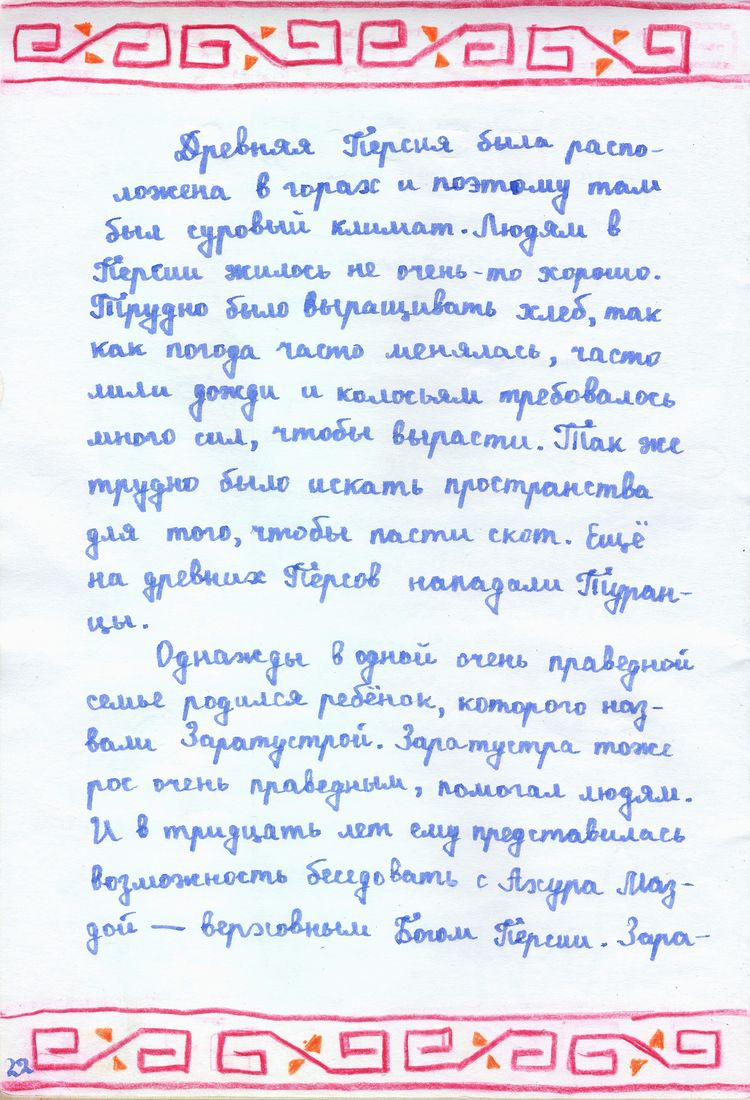 Древняя Персия была распо-
ложена в горах и поэтому там
был суровый климат. Людям в
Персии жилось не очень-то хорошо.
Трудно было выращивать хлеб, так
как погода часто менялась, часто
лили дожди и колосьям требовалось
много сил, чтобы вырасти. Так же
трудно было искать пространства
для того, чтобы пасти скот. Ещё
на древних Персов нападали Туран-
цы.
Однажды в одной очень праведной
семье родился ребёнок, которого наз-
вали Заратустрой. Заратустра тоже
рос очень праведным, помогал людям.
И в тридцать лет ему представилась
возможность беседовать с Ахура Маз-
дой — верховным Богом Персии. Зара-
22